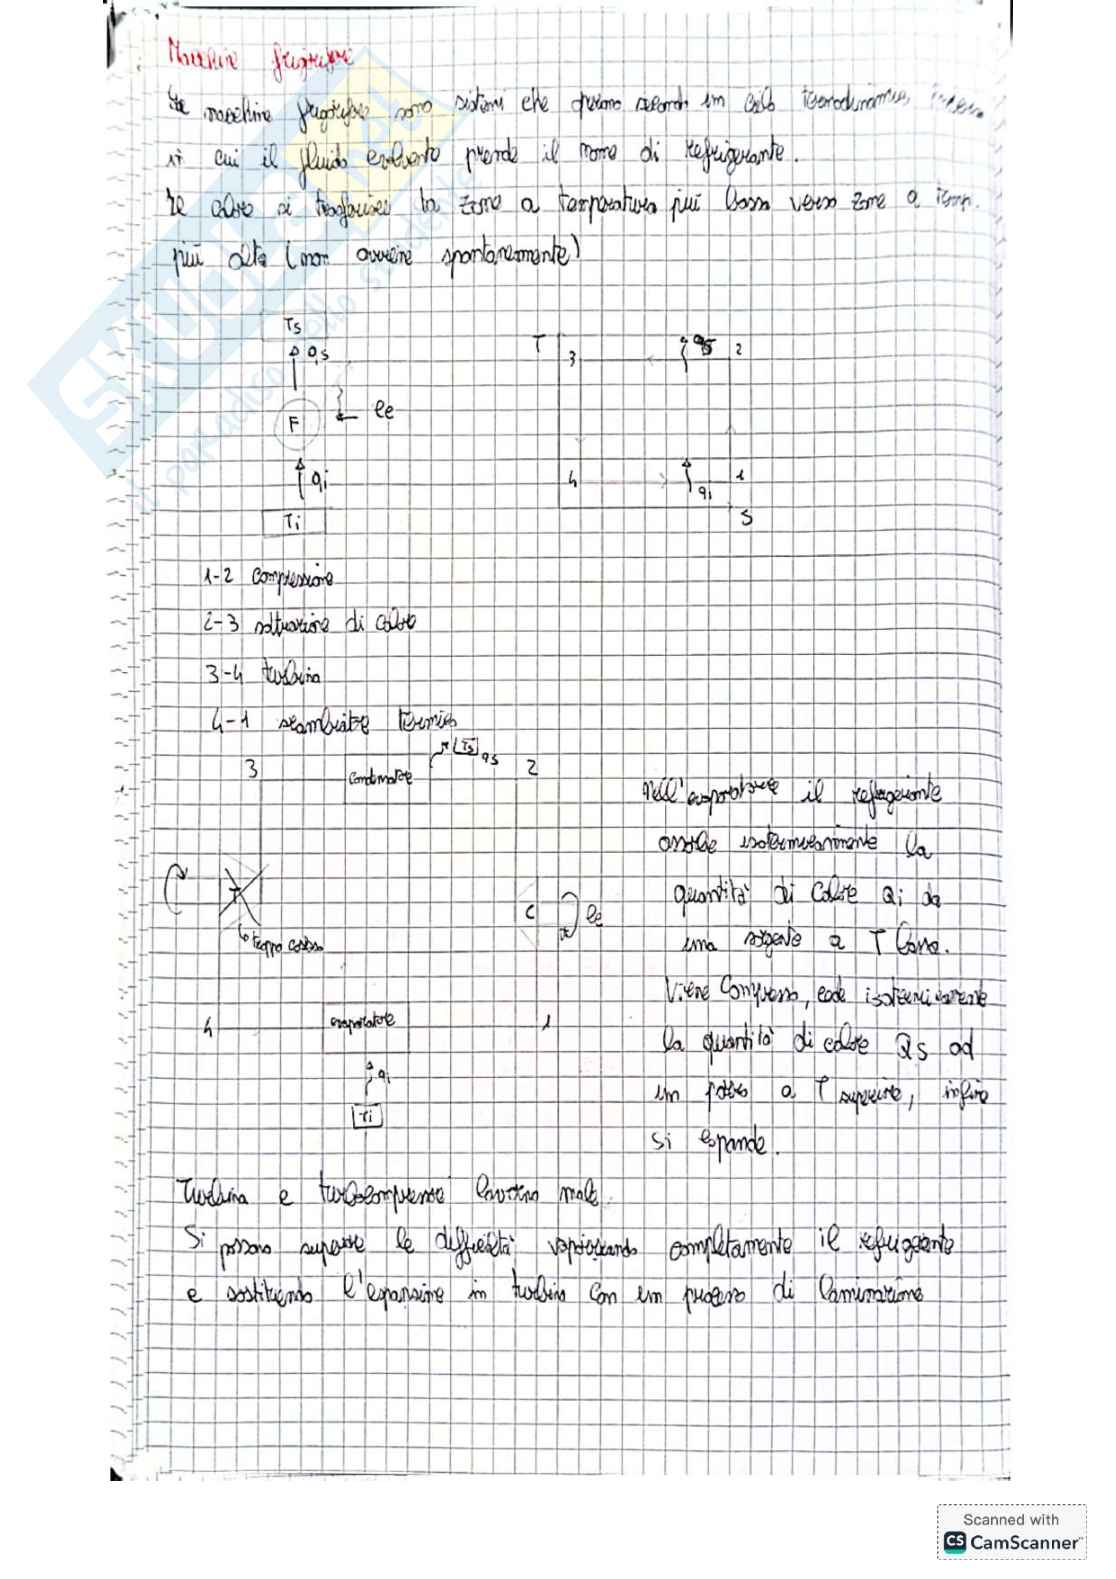 Macchine frigorifere
Le macchine frigorifere sono sistemi che operano secondo un ciclo termodinamico inverso
in cui il fluido evolvente prende il nome di refrigerante.
Il calore si trasferisce da zone a temperatura più bassa verso zone a temp.
più alta (non avviene spontaneamente)
Ts
qs
F
le
qi
Ti
T
3
qs
2
4
qi
1
S
1-2 compressione
2-3 sottrazione di calore
3-4 turbina
4-1 scambiatore termico
3
condensatore
Ts
qs
2
T
troppo costosa
C
le
4
evaporatore
1
qi
Ti
Nell'evaporatore il refrigerante
assorbe isotermicamente la
quantità di calore Qi da
una sorgente a T bassa.
Viene compresso, cede isotermicamente
la quantità di calore Qs ad
un pozzo a T superiore, infine
si espande.
Turbina e turbocompressore lavorano male.
Si possono superare le difficoltà vaporizzando completamente il refrigerante
e sostituendo l'espansione in turbina con un processo di laminazione
SKUOLA.NET
il paradiso dello studente
Scanned with
CS CamScanner